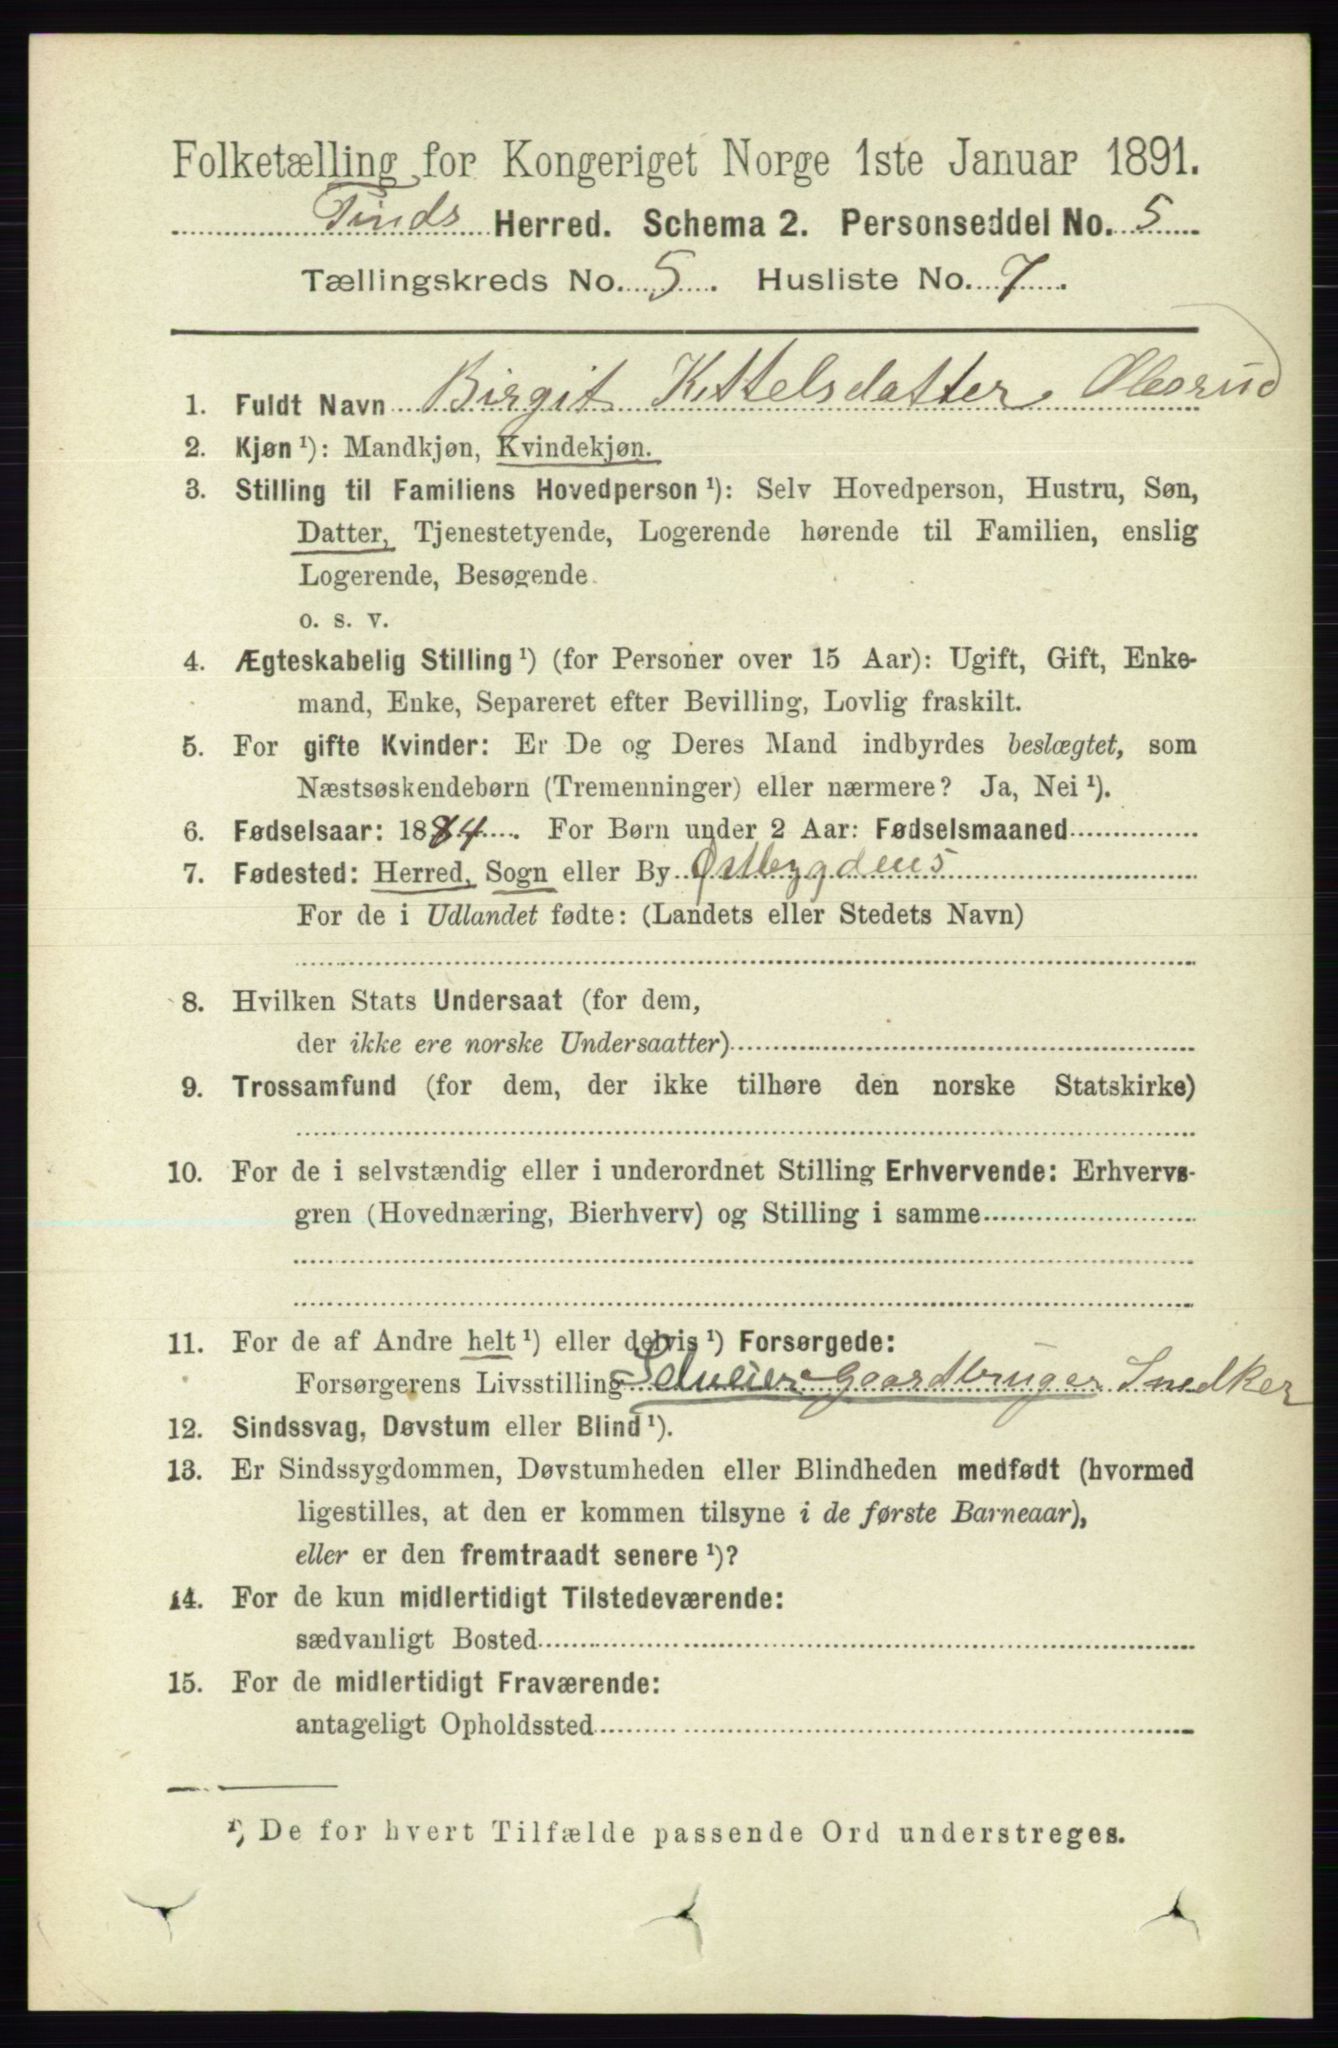 Folketælling for Kongeriget Norge 1ste Januar 1891.
Tinds Herred. Schema 2. Personseddel No. 5
Tællingskreds No. 5. Husliste No. 7.
1. Fuldt Navn Birgit Kittelsdatter
2. Kjøn ¹): Mandkjøn, Kvindekjøn.
3. Stilling til Familiens Hovedperson ¹): Selv Hovedperson, Hustru, Søn,
Datter, Tjenestetyende, Logerende hørende til Familien, enslig
Logerende, Besøgende
o. s. v.
4. Ægteskabelig Stilling ¹) (for Personer over 15 Aar): Ugift, Gift, Enke-
mand, Enke, Separeret efter Bevilling, Lovlig fraskilt.
5. For gifte Kvinder: Er De og Deres Mand indbyrdes beslægtet, som
Næstsøskendebørn (Tremenninger) eller nærmere? Ja, Nei ¹).
6. Fødselsaar: 1884. For Børn under 2 Aar: Fødselsmaaned
7. Fødested: Herred, Sogn eller By Østbygdens
For de i Udlandet fødte: (Landets eller Stedets Navn)
8. Hvilken Stats Undersaat (for dem,
der ikke ere norske Undersaatter)
9. Trossamfund (for dem, der ikke tilhøre den norske Statskirke)
10. For de i selvstændig eller i underordnet Stilling Erhvervende: Erhvervs-
gren (Hovednæring, Bierhverv) og Stilling i samme
11. For de af Andre helt ¹) eller delvis ¹) Forsørgede:
Forsørgerens Livsstilling Selveier Gaardbruger Snedker
12. Sindssvag, Døvstum eller Blind ¹).
13. Er Sindssygdommen, Døvstumheden eller Blindheden medfødt (hvormed
ligestilles, at den er kommen tilsyne i de første Barneaar),
eller er den fremtraadt senere ¹)?
14. For de kun midlertidigt Tilstedeværende:
sædvanligt Bosted
15. For de midlertidigt Fraværende:
antageligt Opholdssted
¹) De for hvert Tilfælde passende Ord understreges.